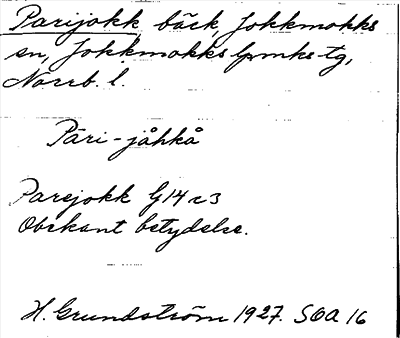 Parijokk bäck, Jokkmokks
sn, Jokkmokks lpmks tg,
Norrb. l.
Päri-jåhkå
Parejokk G14 c3
Obekant betydelse.
H. Grundström 1927. SOA 16